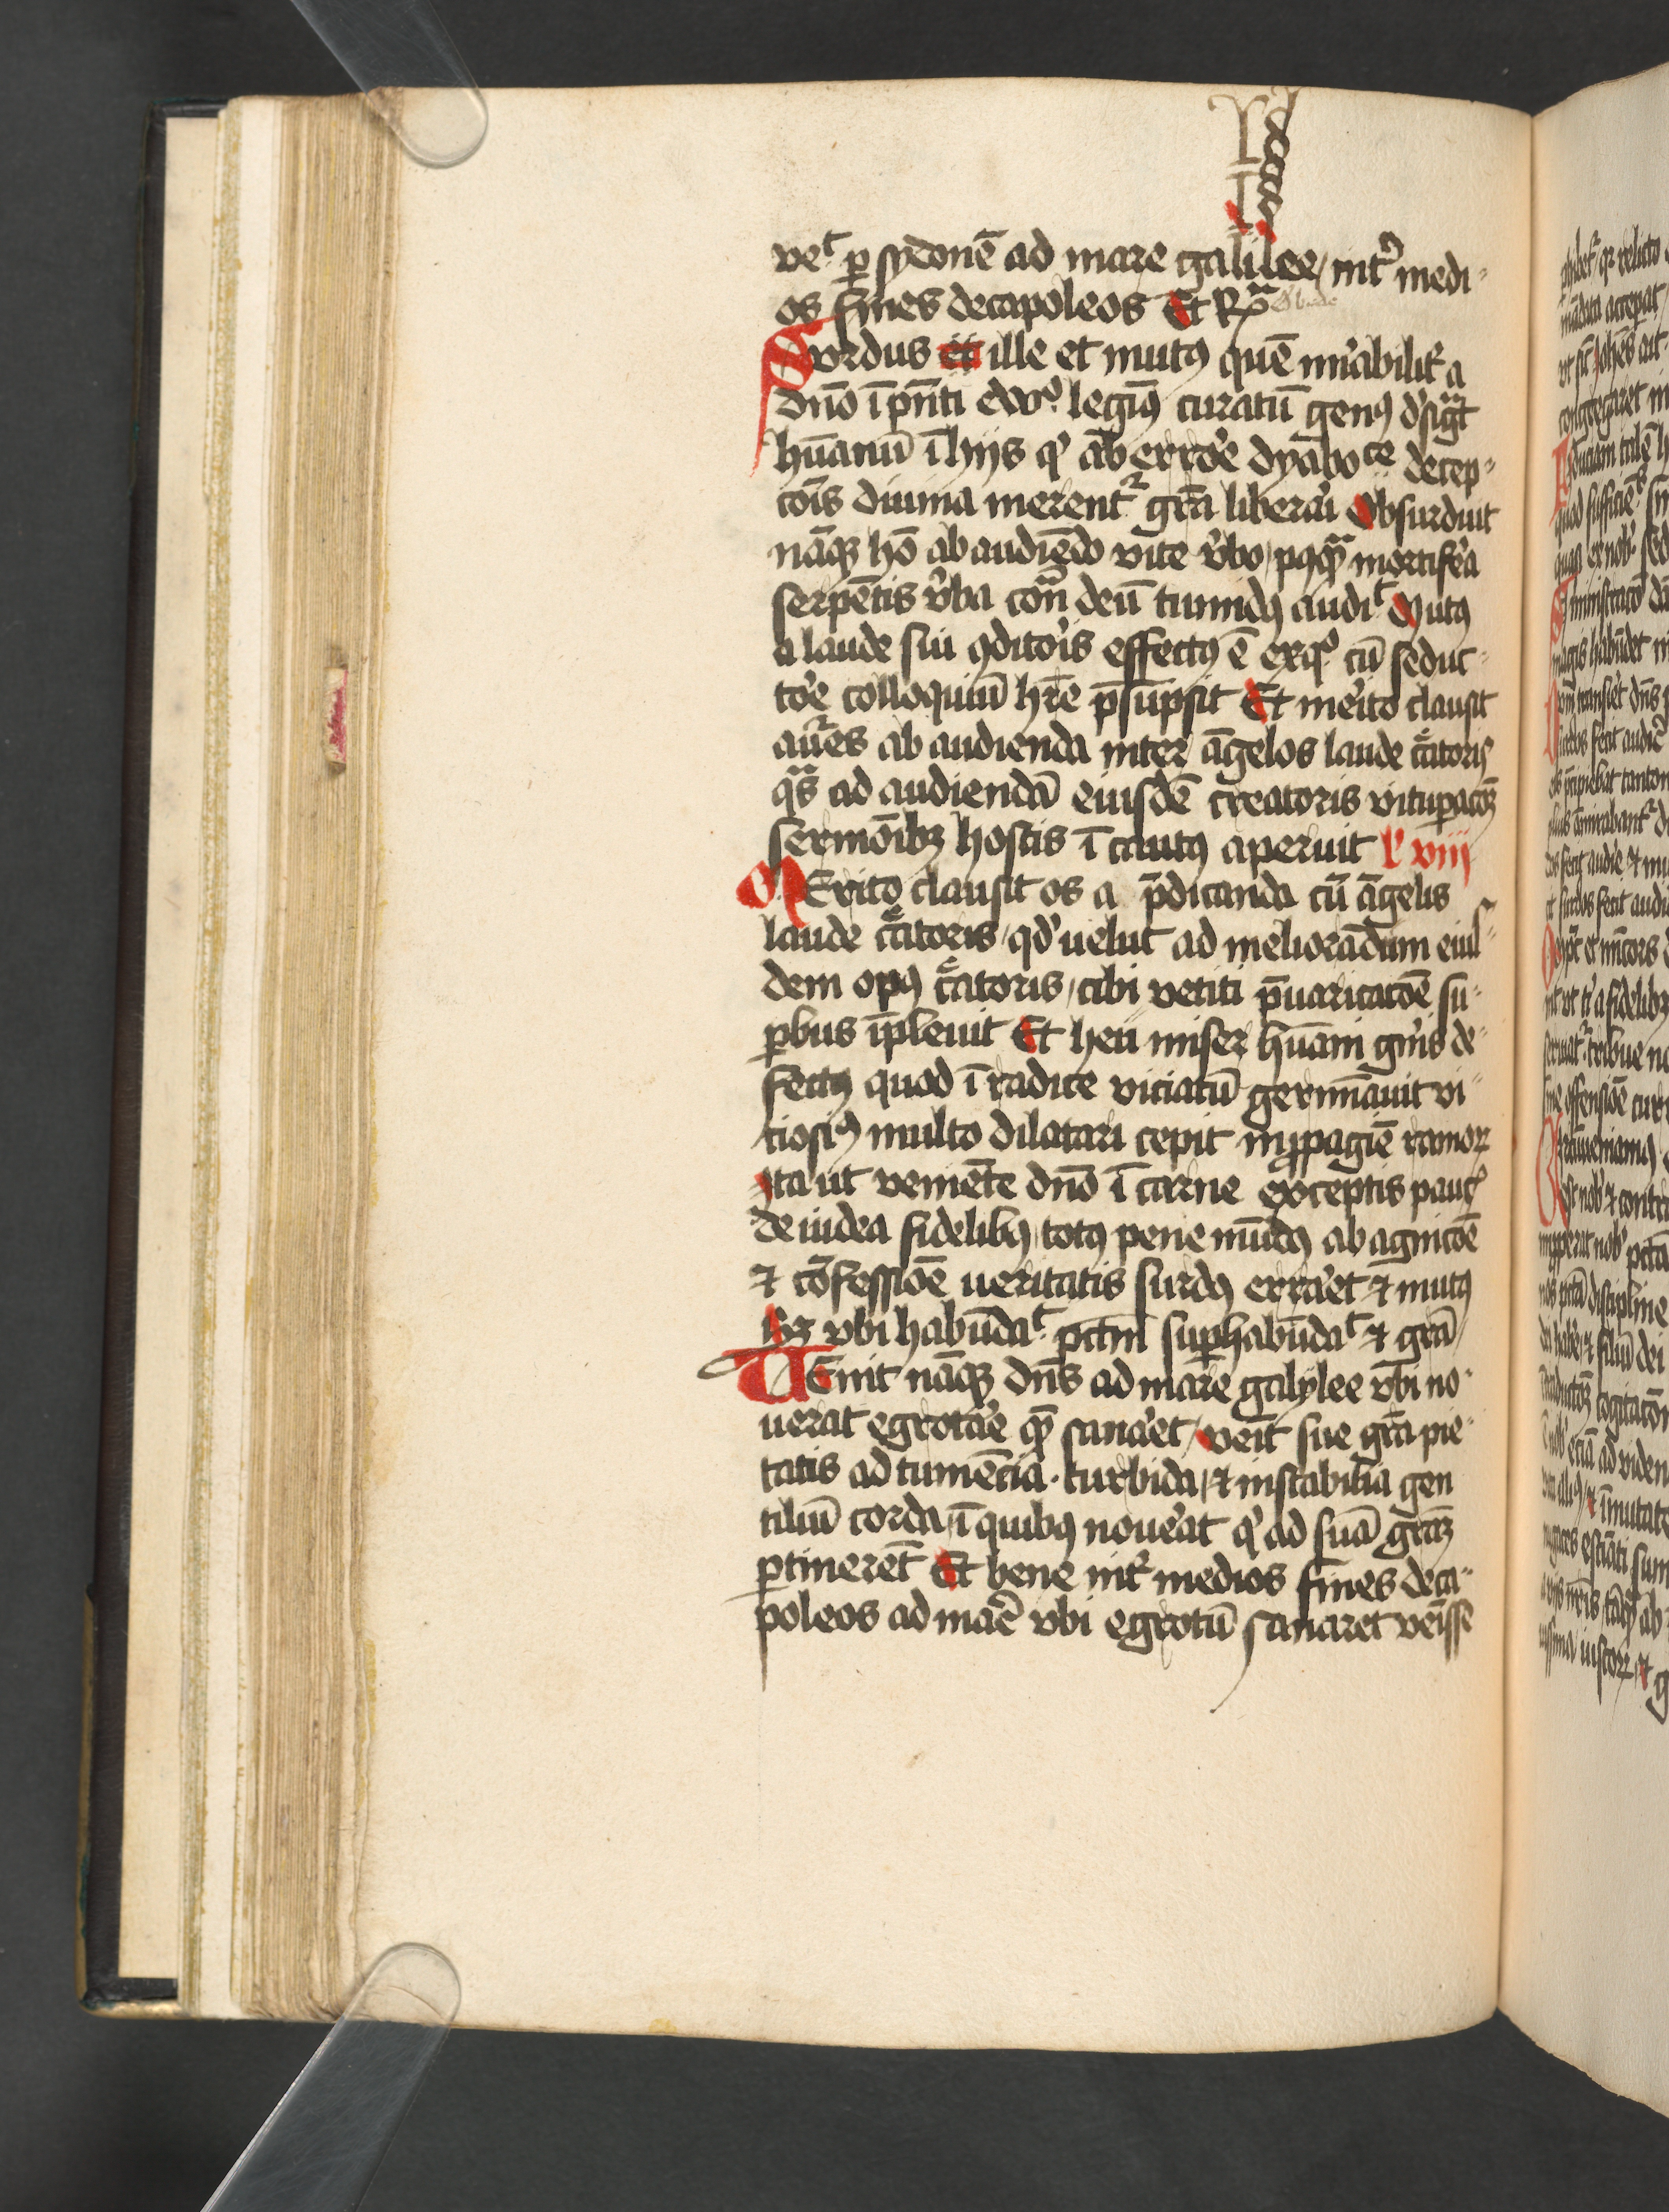 ve᷑ ꝑ sydonē ad mare galilee / int᷑ medi-
os fines decapoleos Et Rͣ
Surdus et ille et mutꝰ quē mi᷑abilit᷑ a
dn̄o ī pn̄ti ewº legimꝰ curatū genꝰ d᷑sigͣt
hūanū ī hijs qⁱ ab erro᷑e dyabo ce decep-
cois̄ diuina merent᷑ gr̄a libera᷑i Obsurduit
nāqꝫ hō ab audiēdo vite v᷑bo / pꝰqͣ mortife᷑a
serpētis v᷑ba con̄ deū tumidꝰ audi᷑ Mutꝰ
a laude sui ꝯdito᷑is effectꝰ ē exqº cū seduc-
to᷑e colloquiū hr̄e p̄sūpsit Et me᷑ito clausit
aures ab audienda inter āgelos laude c᷑atoris
qͣs ad audiendā eiusdē creatoris vitupacōꝫ
sermōibꝫ hostis ī cautꝰ aperuit l᷑ viij
MErito clausit os a p̄dicanda cū āgelis
laude c᷑atoris / qd᷑ uelut ad meliorādum eius-
dem opꝰ c᷑atoris / cibi vetiti p̄uaricacōē su-
ꝑbus īpleuit Et heu miser hūani gn᷑is de-
fectꝰ quod ī radice viciatū germīauit vi-
tiosiꝰ multo dilatari cepit in ꝓpagiē ramoꝝ
Ita ut veniēte dn̄o ī carne exceptis pauc᷑
de iudea fidelibꝰ / totꝰ pene mūdꝰ ab agnicōē
⁊ cōfessiōē ueritatis surdꝰ erra᷑et ⁊ mutꝰ
Sꝫ vbi habūda᷑ pctm̄ suꝑhabūda᷑ ⁊ gr̄a
UEnit nāqꝫ dn̄s ad mare galylee vbi no-
uerat egrota᷑e qᷓ sana᷑et / veīt sue gr̄a pie-
tatis ad tumēcia · turbida / ⁊ instabilia gen
tiliū corda / ī quibꝰ noue᷑at qⁱ ad suā gr̄aꝫ
ꝑtinerēt Et bene int᷑ medios fines deca-
poleos ad ma᷑e vbi egrotū sanaret veīsse